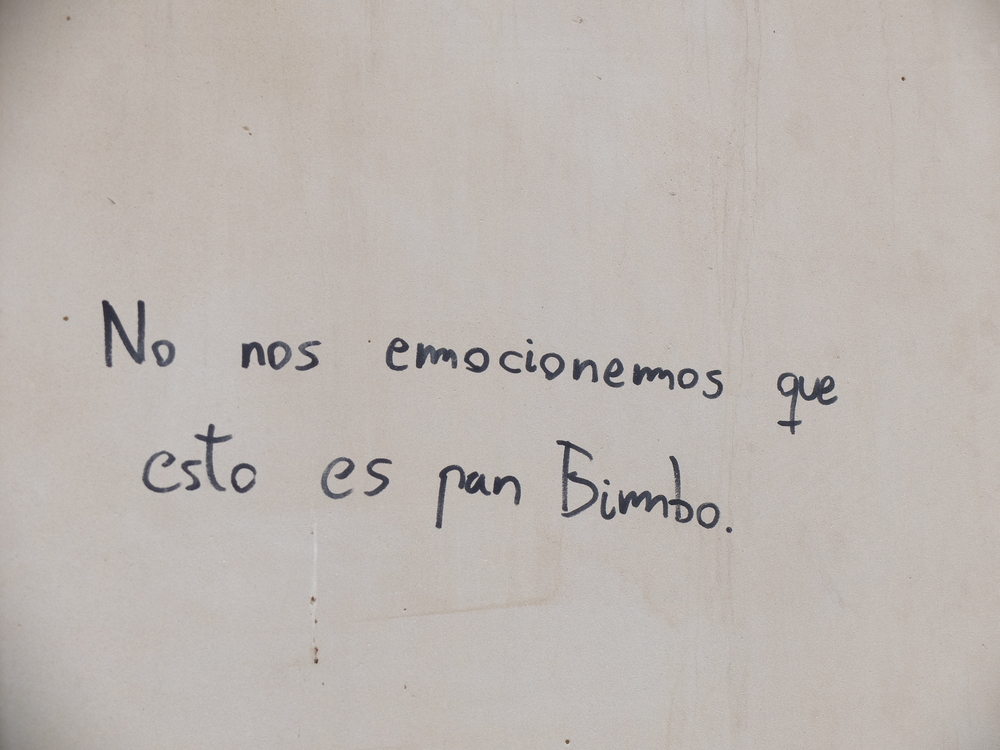 No nos emocionemos que
esto es pan Bimbo.